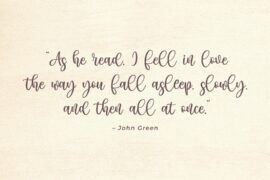 "As he read, I fell in love
the way you fall asleep, slowly,
and then all at once."
– John Green